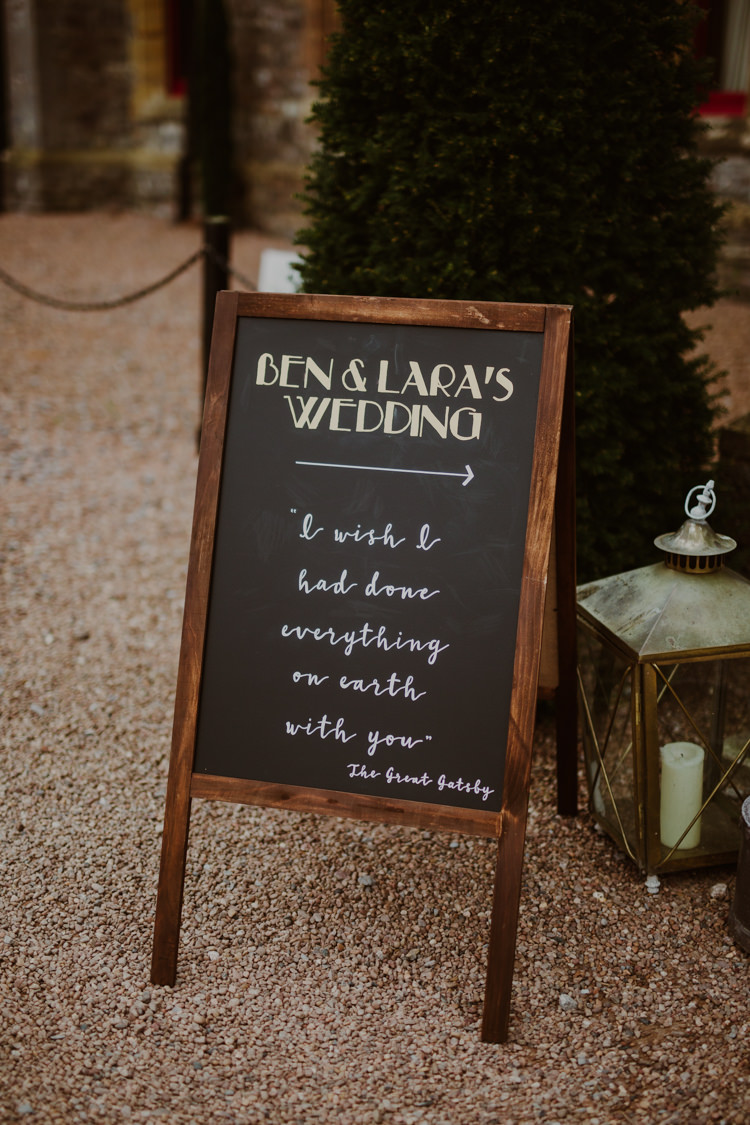 BEN & LARA'S
WEDDING
"I wish I
had done
everything
on earth
with you"
The Great Gatsby